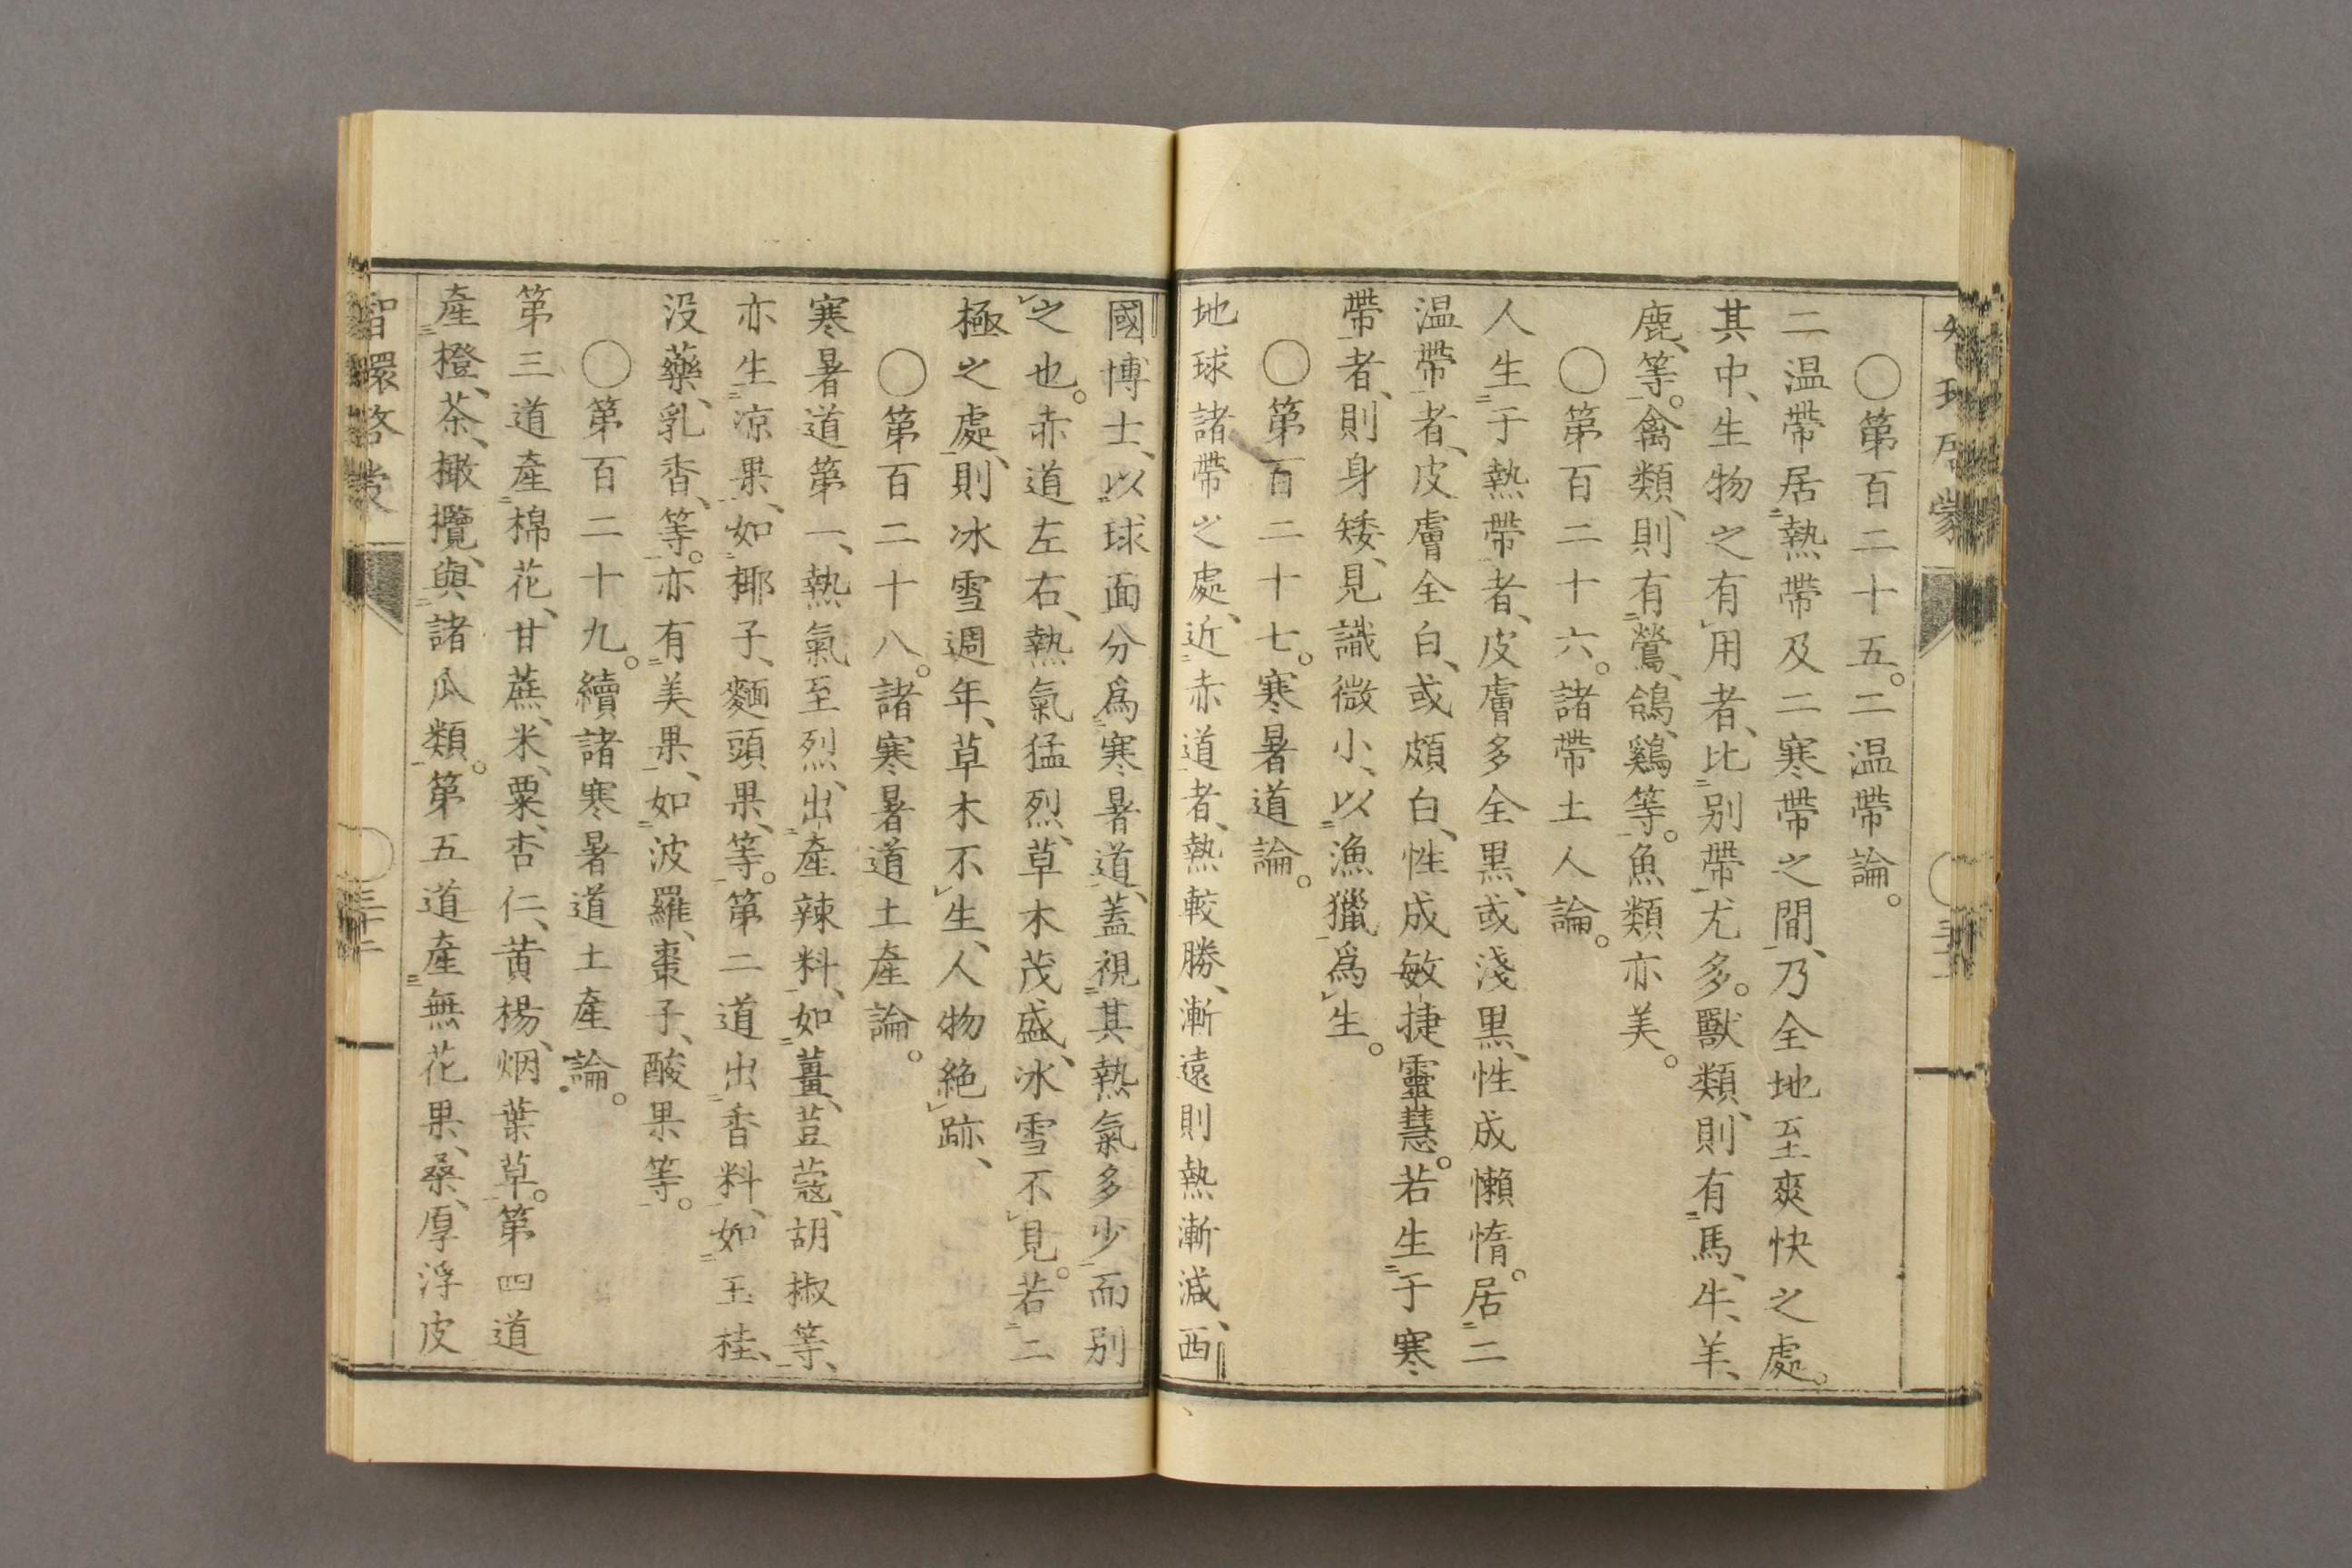 〇第百二十五。二温帶論。
二温帶居熱帶及二寒帶之間、乃全地至爽快之處。
其中、生物之有用者、比别帶尤多。獸類、則有馬、牛、羊、
鹿、等。禽類、則有鶯、鴿、鷄等。魚類亦美。
〇第百二十六。諸帶土人論。
人生于熱帶者、皮膚多全黒、或淺黒、性成懶惰。居二
温帶者、皮膚全白、或頗白、性成敏捷靈慧。若生于寒
帶者、則身矮、見識微小、以漁獵爲生。
〇第百二十七。寒暑道論。
地球諸帶之處、近赤道者、熱較勝、漸遠則熱漸減、西
國博士、以球面分爲寒暑道、蓋視其熱氣多少而别
之也。赤道左右、熱氣猛烈、草木茂盛、冰雪不見。若二
極之處、則冰雪週年、草木不生、人物絶跡、
〇第百二十八。諸寒暑道土產論。
寒暑道第一、熱氣至烈、出產辣料、如薑、荳蔻、胡椒等、
亦生凉果、如椰子、麵頭果、等。第二道出香料、如玉桂、
没藥、乳香、等。亦有美果、如波羅、棗子、酸果等。
〇第百二十九。續諸寒暑道土產論。
第三道產棉花、甘蔗、米、粟、杏仁、黄楊、烟葉草。第四道
產橙、茶、橄欖、與諸瓜類。第五道產無花果、桑、厚浮皮
智環啓蒙